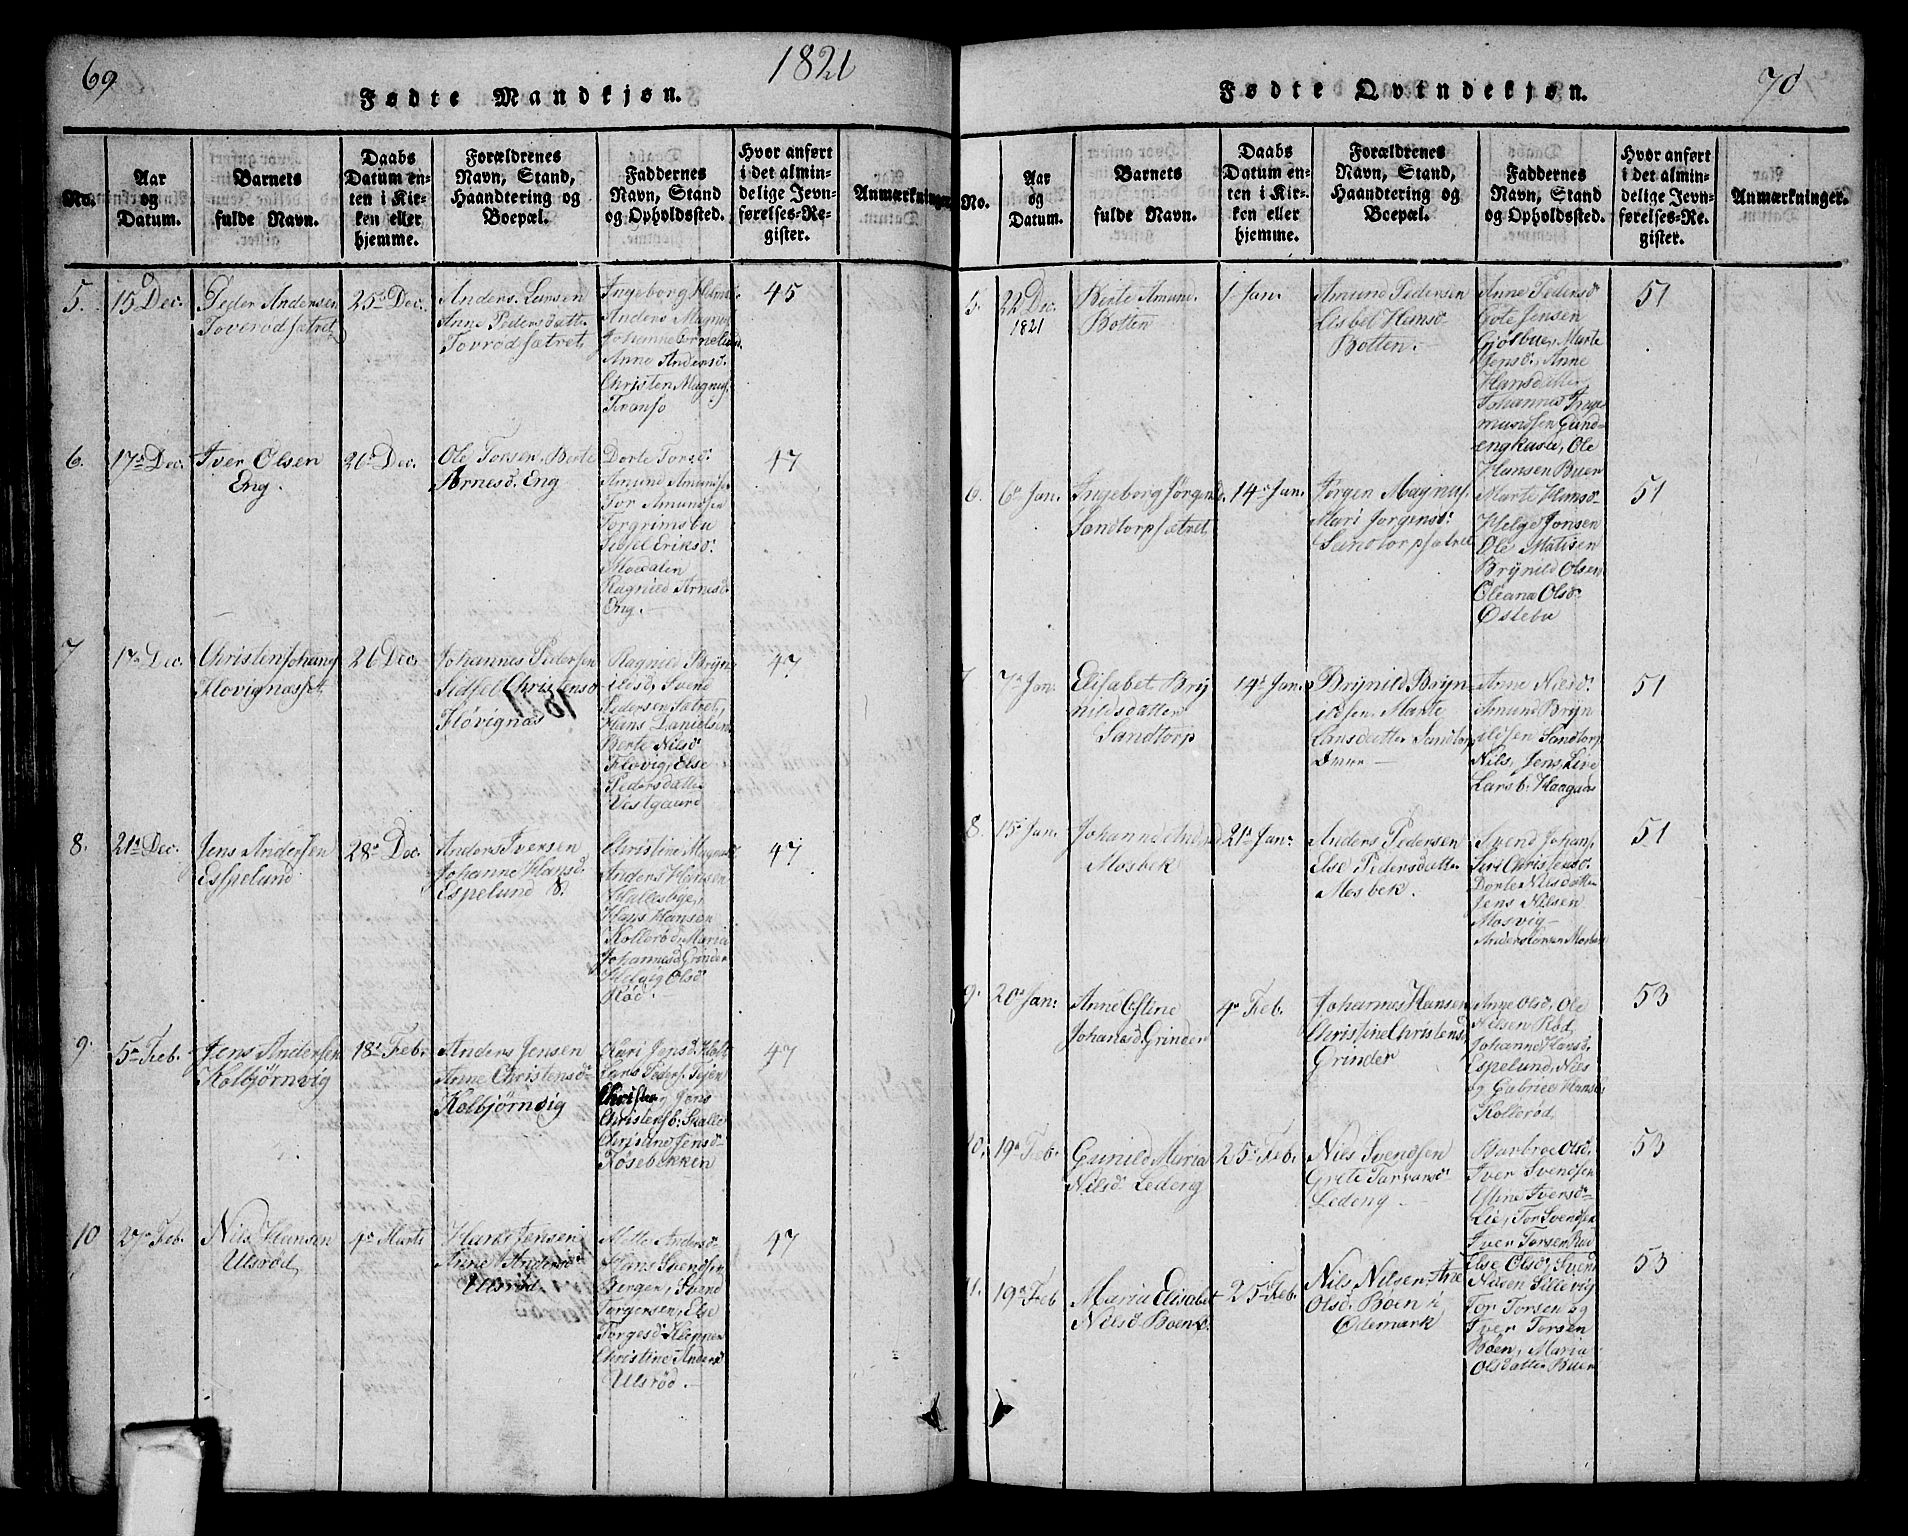 69
1821
Fødte Mandkjøn.
No.
Aar
og
Datum.
Barnets
fulde Navn.
Daabs
Datum en-
ten i Kir-
ken eller
hjemme.
Forældrenes
Navn, Stand,
Haandtering og
Boepæl.
Faddernes
Navn, Stand
og Opholdssted.
Hvor anført
i det almin-
delige Jevn-
førelses-Re-
gister.
Anmærkninger.
5.
15 Dec.
Peder Andersen
Toverødsætret
25 Dec.
Anders Larsen
Anne Pedersdatt.
Tovrødsætret
Ingeborg
Anders Magnus
Johanne Cornelius
Anne Andersd.
Christen Magnus
45
6.
17 Dec.
Iver Olsen
Eng.
26 Dec.
Ole Torsen, Berte
Arnesd. Eng
Dorte Torsd.
Amund Amundsen
Tor Amundsen
Torgrimsbu
Sidsel Eriksd.
Moedalen
Ragnild Arnesd.
Eng.
47
7
17 Dec.
Christen Johans
26 Dec.
Johannes Pedersen
Sidsel Christensd
Flövignæs
1821
Ragnild Bryn-
ildsd, Svend
Pedersen Sætret,
Hans Danielsen
Berte Nilsd.
Flövig, Else
Pedersdatter
Vestgaard
47
8.
21 Dec.
Jens Andersen
Espelund
28 Dec.
Anders Iversen
Johanne Hansd.
Espelund 8.
Christine Magnus
Anders Hansen
Hallesbye,
Hans Hansen
Kolleröd, Maria
Johannesd Grinder
Helvig Olsd
Röd.
47
9.
5 Feb.
Jens Andersen
Kolbjørnvig
18 Febr
Anders Jensen
Anne Christensd
Kolbjørnvig
Kari Jensd.
Lars Peders.
Christen, Jens
Christensb. Skalle
Christine Jensd.
Fosebekken
47
10
27 Feb.
Nils Hansen
Ulsröd,
4 Marti
Hans Jensen
Anne Andersd
Ulsröd.
Mette Andersd
Hans Svendsen
Bergen, Svend
Torgersen, Else
Torgesd Kleppen
Christine Andersd
Ulsröd.
47
70
Fødte Qvindekjøn.
No.
Aar
og
Datum.
Barnets
fulde Navn.
Daabs
Datum en-
ten i Kir-
ken eller
hjemme.
Forældrenes
Navn, Stand,
Haandtering og
Boepæl.
Faddernes
Navn, Stand
og Opholdssted.
Hvor anført
i det almin-
delige Jevn-
førelses-Re-
gister.
Anmærkninger.
5.
22 Dec.
1821
Berte Amund
Botten
1 Jan.
Amund Pedersen
Lisbet Hansd
Botten.
Anne Pedersd
Gote Jensen
Gjölbue, Marte
Jensd. Anne
Hansdatter
Johannes Inge-
mundsen Gund-
engkaste, Ole
Hansen Buer
51
6.
6 Jan.
Ingeborg Jørgensd.
Sandtorpsætret
14 Jan.
Jørgen Magnus.
Mari Jorgensd.
Sandtorpsætret
Marte Hansd
Helge Jonsen
Ole Matisen
Brynild Olsen
Oleana Olsd
Östebu
51
7.
7 Jan.
Elisabet Bry
nildsdatter
Sandtorp
14 Jan.
Brynild Bryn-
ildsen Marte
Larsdatter Sandtorp
Anne Nilsd.
Amund Bryn
ildsen Sandtorp
Nils, Jens, Live
Larsb. Haagaas
51
8.
15 Jan.
Johanne And
Mosbek
21 Jan.
Anders Pedersen
Else Pedersdatter
Mosbek.
Svend Johans
Siri Christensd.
Dorte Nilsdatter
Jens Nilsen
Mosvig
Anders Torsen
51
9.
20 Jan.
Anne Cistine
Johansd Grinder
4 Feb.
Johannes Hansen
Christine Christensd
Grinder
Anne Olsd, Ole
Nilsen Röd,
Johanne Hansd.
Espelund, Nils
og Gabriel Hansen
Kolleröd,
53
10.
19 Feb.
Gunild Maria
Nilsd Ledeng
25 Feb.
Nils Svendsen
Grete Tarvarsd
Ledeng.
Barbroe Olsd.
Iver Svendsen
Cistine Iversd
Lie, Tor Svendsen
Iver Torsen
53
11.
19 Feb
Maria Elisabet
Nilsd Böen
25 Feb.
Nils Nilsen, Ane
Olsd. Böen i
Ödemark
Else Olsd, Svend
Nilsen Lillevig
Tor Torsen og
Iver Torsen
Böen, Maria
Olsdatter Buer
53